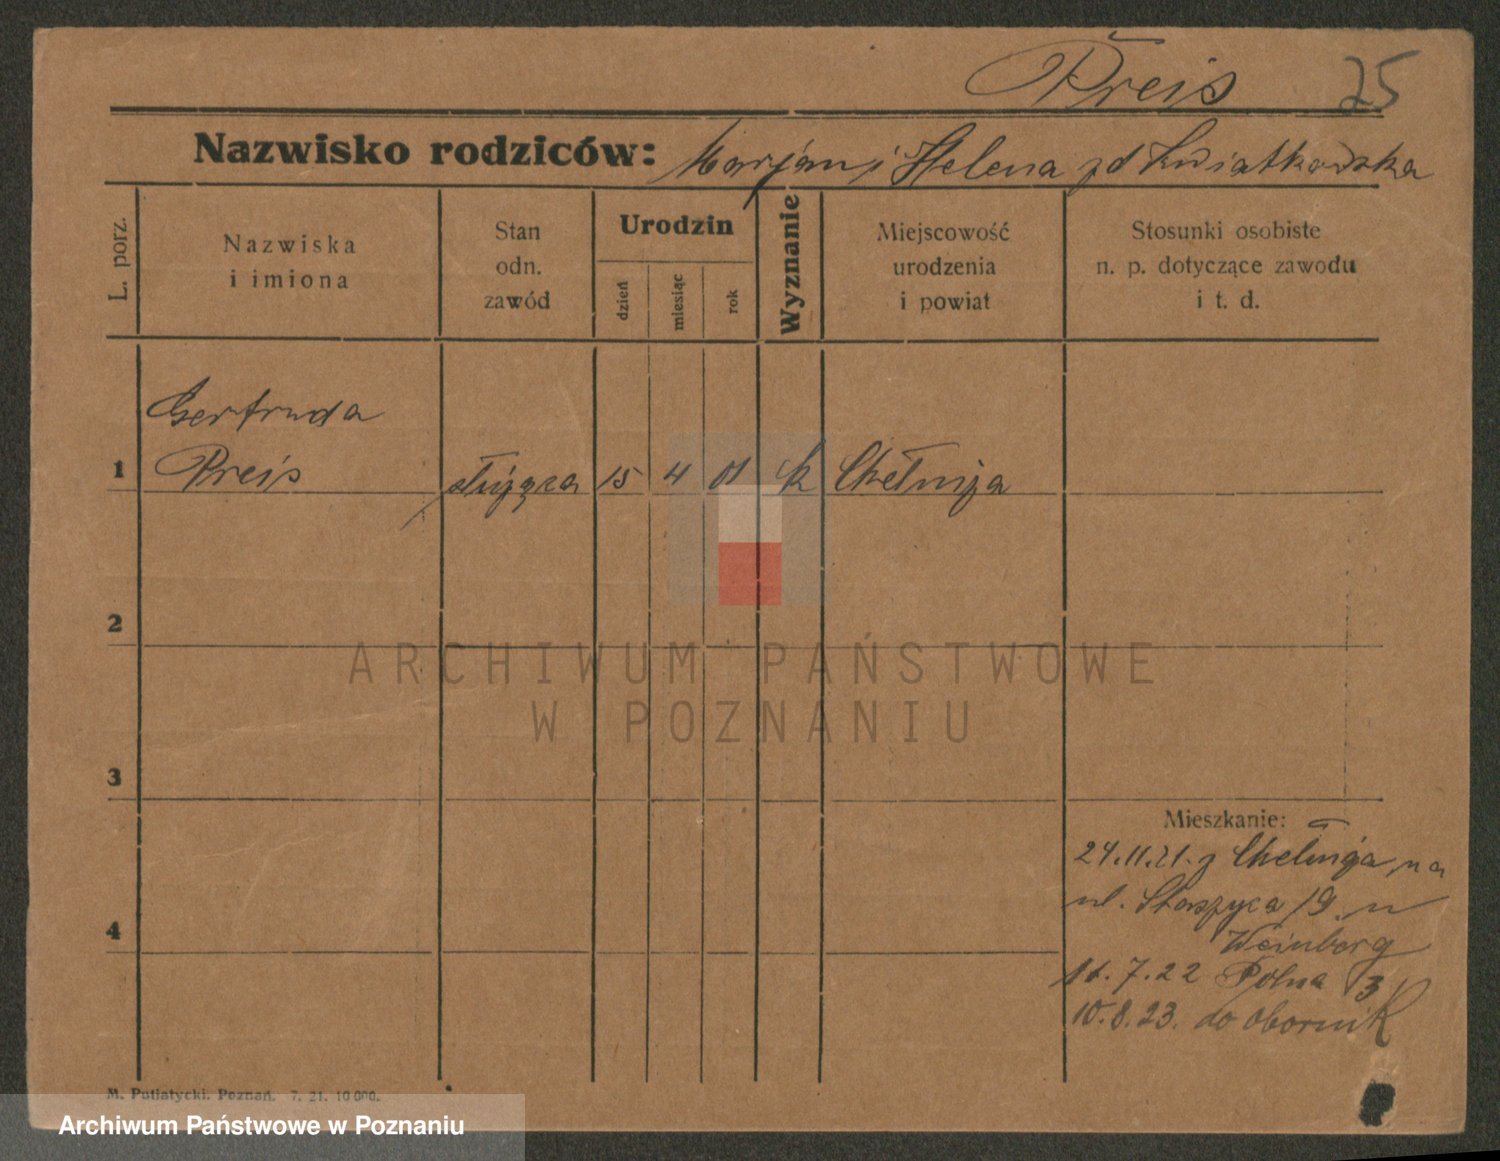 Preis 25
Nazwisko rodziców: Marjan i Helena zd Kwiatkowska
L. porz.
Nazwiska
i imiona
Stan
odn.
zawód
Urodzin
dzień
miesiąc
rok
Wyznanie
Miejscowość
urodzenia
i powiat
Stosunki osobiste
n. p. dotyczące zawodu
i t. d.
Gertruda
1 Preis służąca 15 4 01 k Chełmża
2
3
4
ARCHIWUM PAŃSTWOWE
W POZNANIU
Mieszkanie:
24.11.21. z Chełmża na
ul. Staszyca 19 u
Weinberg
11.7.22 Polna 3
10.8.23. do Obornik
M. Putiatycki. Poznań. 7. 21. 10 000.
Archiwum Państwowe w Poznaniu